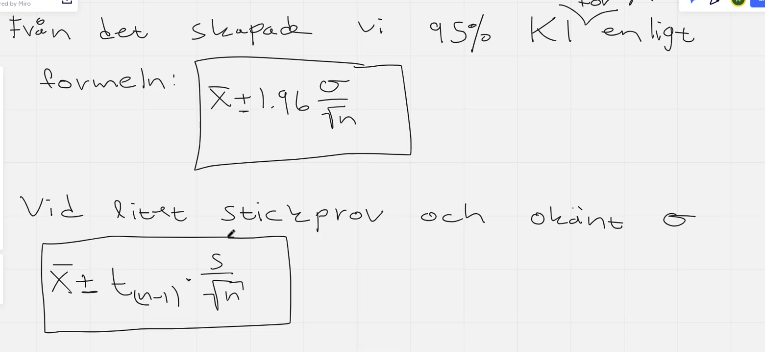 ed by Miro
för
Från det skapade vi 95% KI enligt
formeln:
x̄ ± 1.96 σ/√n
Vid litet stickprov och okänt σ
x̄ ± t(n-1) · s/√n